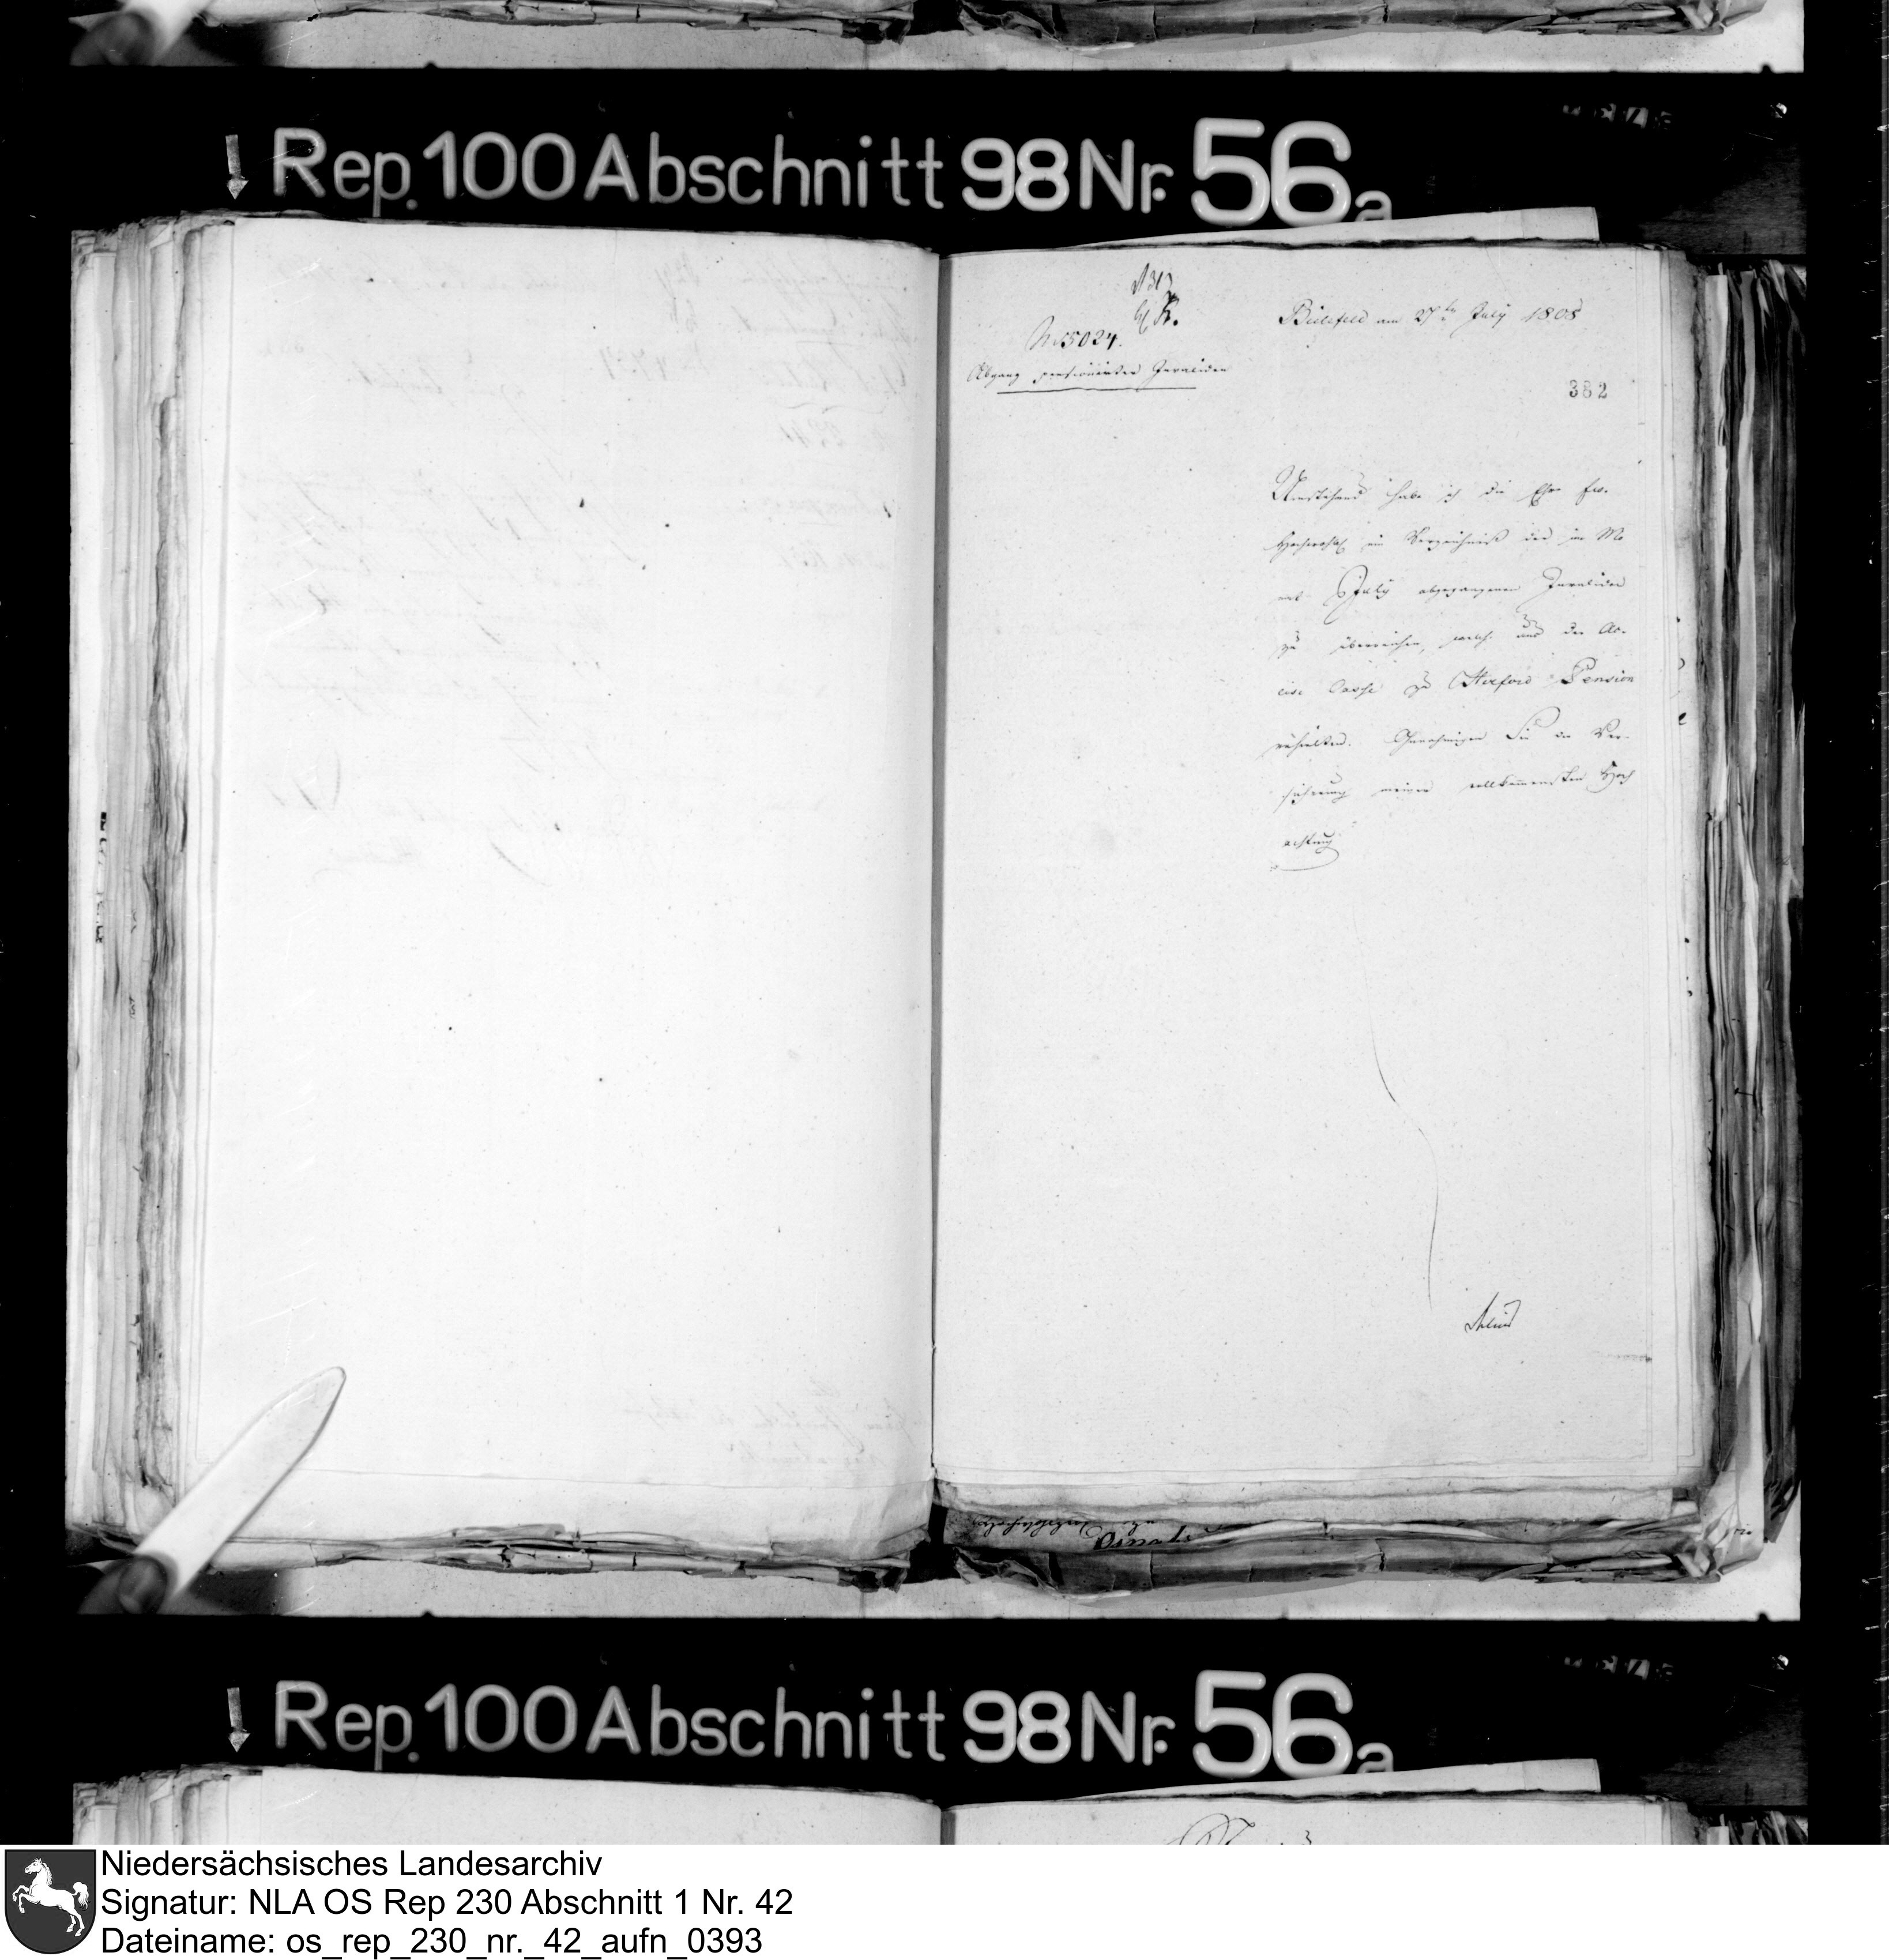 Rep. 100 Abschnitt 98 Nr. 56a
No 5024.
Abgang pensionirter Invaliden
Bielefeld am 27ten July 1808
382
Umstehend habe ich die Ehre Ew.
Hochwohlg. ein Verzeichniß der im Mo
nat July abgegangenen Invaliden
zu überreichen, welche aus der Ac-
cise Casse zu Herford Pension
erhielten. Genehmigen Sie die Ver-
sicherung meiner vollkommensten Hoch
achtung
Rep. 100 Abschnitt 98 Nr. 56a
Niedersächsisches Landesarchiv
Signatur: NLA OS Rep 230 Abschnitt 1 Nr. 42
Dateiname: os_rep_230_nr._42_aufn_0393